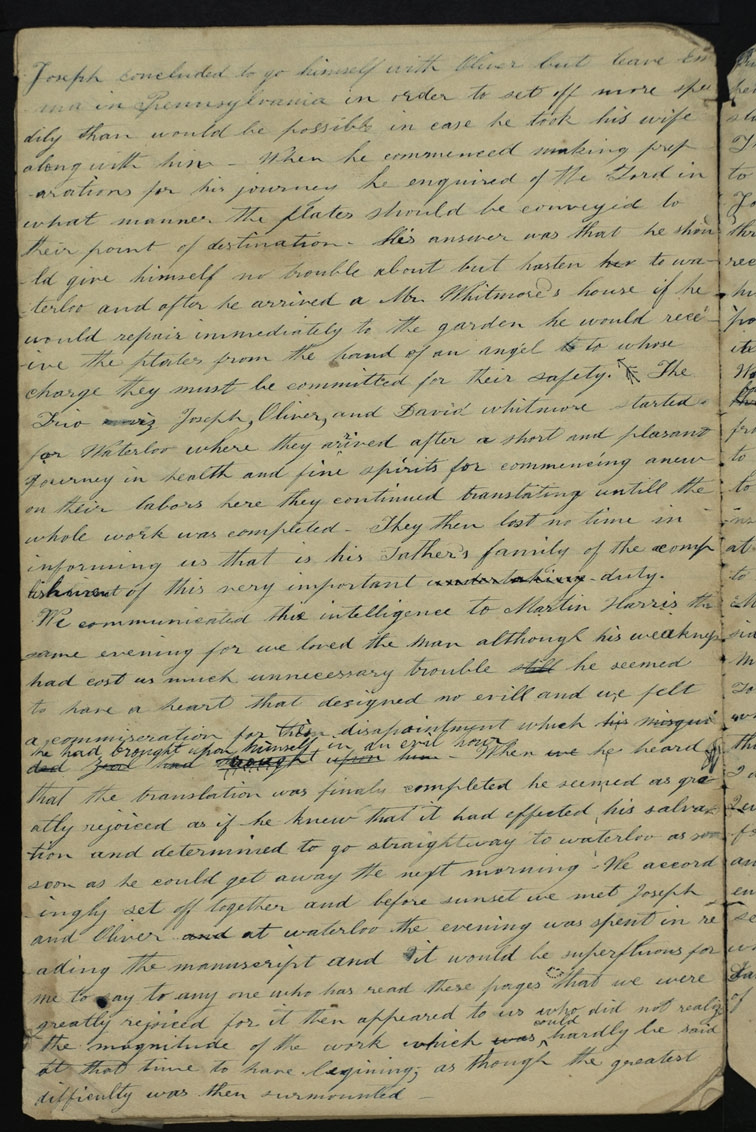 Joseph concluded to go himself with Oliver but leave Em
ma in Pennsylvania in order to set off more spee
dily than would be possible in case he took his wife
along with him - When he commenced making prep
arations for his journey he enquired of the Lord in
what manner the plates should be conveyed to
their point of destination - His answer was that he shou
ld give himself no trouble about but hasten her to wa-
terloo and after he arrived a Mr. Whitmore's house if he
would repair immediately to the garden he would rece-
ive the plates from the hand of an angel to to whose
charge they must be committed for their safety. The
Trio viz Joseph, Oliver, and David whitmore started
for Waterloo where they arived after a short and pleasant
journey in health and fine spirits for commencing anew
on their labors here they continued translating untill the
whole work was completed - They then lost no time in
informing us that is his Father's family of the acomp
lishment of this very important undertaking duty.
We communicated this intelligence to Martin Harris the
same evening for we loved the man although his weakness
had cost us much unnecessary trouble still he seemed
to have a heart that designed no evill and we felt
a commiseration for disapointment which his misgui
he had brought upon himself in an evil hour
ded zeal had brought upon him - When we he heard
that the translation was finaly completed he seemed as gre
atly rejoiced as if he knew that it had effected his salva
tion and determined to go straightway to waterloo as
soon as he could get away the next morning We accord
ingly set off together and before sunset we met Joseph
and Oliver and at waterloo the evening was spent in re
ading the manuscript and it would be superfluous for
me to say to any one who has read these pages that we were
greatly rejoiced for it then appeared to us who did not realize
could
the magnitude of the work which was hardly be said
at that time to have begining; as though the greatest
difficulty was then surmounted -